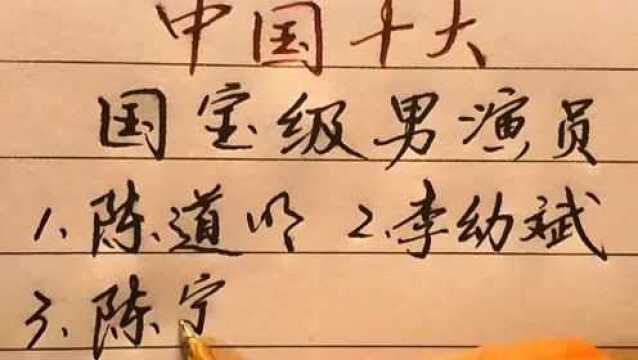 中国十大
国宝级男演员
1、陈道明 2、李幼斌
3、陈宁